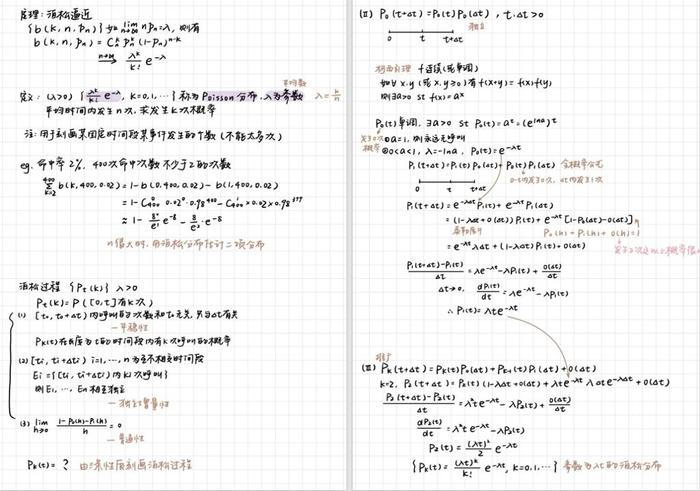 定理：泊松逼近
{b(k,n,Pn)} 如 lim n→∞ nPn=λ，则有
b(k,n,Pn) = C_n^k P_n^k (1-Pn)^{n-k}
n→∞ → λ^k/k! e^{-λ}
定义：(λ>0) {λ^k/k! e^{-λ}, k=0,1,…} 称为 Poisson 分布，λ为参数 λ=
平均数
平均时间内发生n次，求发生k次不概率
注：用于刻画某固定时间段某事件发生的个数（不能太多次）
eg. 命中率2%，400次命中次数不少于2的次数
Σ_{k=2}^{400} b(k,400,0.02) = 1-b(0,400,0.02) - b(1,400,0.02)
= 1- C_400^0 0.02^0·0.98^400 - C_400^1 ×0.02×0.98^399
≈ 1- 8^0/0! e^{-8} - 8/1·e^{-8}
n很大时，用泊松分布估计二项分布
泊松过程 {Pt(k)} λ>0
Pt(k)=P([0,t]有k次)
(1) [t0,t0+Δt) 内呼叫的次数和t0无关，只与Δt有关
—平稳性
Pk(t)在长度为t的时间段内有k次呼叫的概率
(2) [ti,ti+Δti) i=1,…,n为互不相交时间段
Ei={[ti,ti+Δti)内ki次呼叫}
则E1,…,En相互独立
—独立增量性
(3) lim h→0 1-P0(h)-P1(h)/h = 0
—普通性
Pk(t)= ？ 由三条性质刻画泊松过程
(I) P0(t+Δt)=P0(t)P0(Δt)，t,Δt>0
独立
0 t t+Δt
柯西引理 f连续(或单调)
如∀x,y (或x,y>0) 有f(x+y)=f(x)f(y)
则∃a>0 st f(x)=a^x
P0(t)单调，∃a>0 st P0(t)=a^t=(e^{lna})^t
发生0次概率
①a=1，则永远无呼叫
②0<a<1，λ=-lna，P0(t)=e^{-λt}
P1(t+Δt)=P1(t)P0(Δt)+P0(t)P1(Δt) 全概率公式
0-t内发生0次，Δt内发生1次
0 t t+Δt
P1(t+Δt)=e^{-λΔt}P1(t)+e^{-λt}P1(Δt)
=(1-λΔt+o(Δt))P1(t)+e^{-λt}[1-P0(Δt)-o(Δt)]
泰勒展开
P0(h)+P1(h)+o(h)=1
=e^{-λt}λΔt+(1-λΔt)P1(t)+o(Δt)
P1(t+Δt)-P1(t)/Δt = λe^{-λt}-λP1(t)+o(Δt)/Δt
Δt→0，dP1(t)/dt = λe^{-λt}-λP1(t)
∴P1(t)=λte^{-λt}
推广
(II) Pk(t+Δt)=Pk(t)P0(Δt)+Pk-1(t)P1(Δt)+o(Δt)
k=2，P2(t+Δt)=P2(t)(1-λΔt+o(Δt))+λte^{-λt}λΔte^{-λΔt}+o(Δt)
P2(t+Δt)-P2(t)/Δt = λ²te^{-λt}-λP2(t)+o(Δt)/Δt
dP2(t)/dt = λ²te^{-λt}-λP2(t)
P2(t)=(λt)²/2 e^{-λt}
{Pk(t)=(λt)^k/k! e^{-λt}, k=0,1,…} 参数为λt的泊松分布